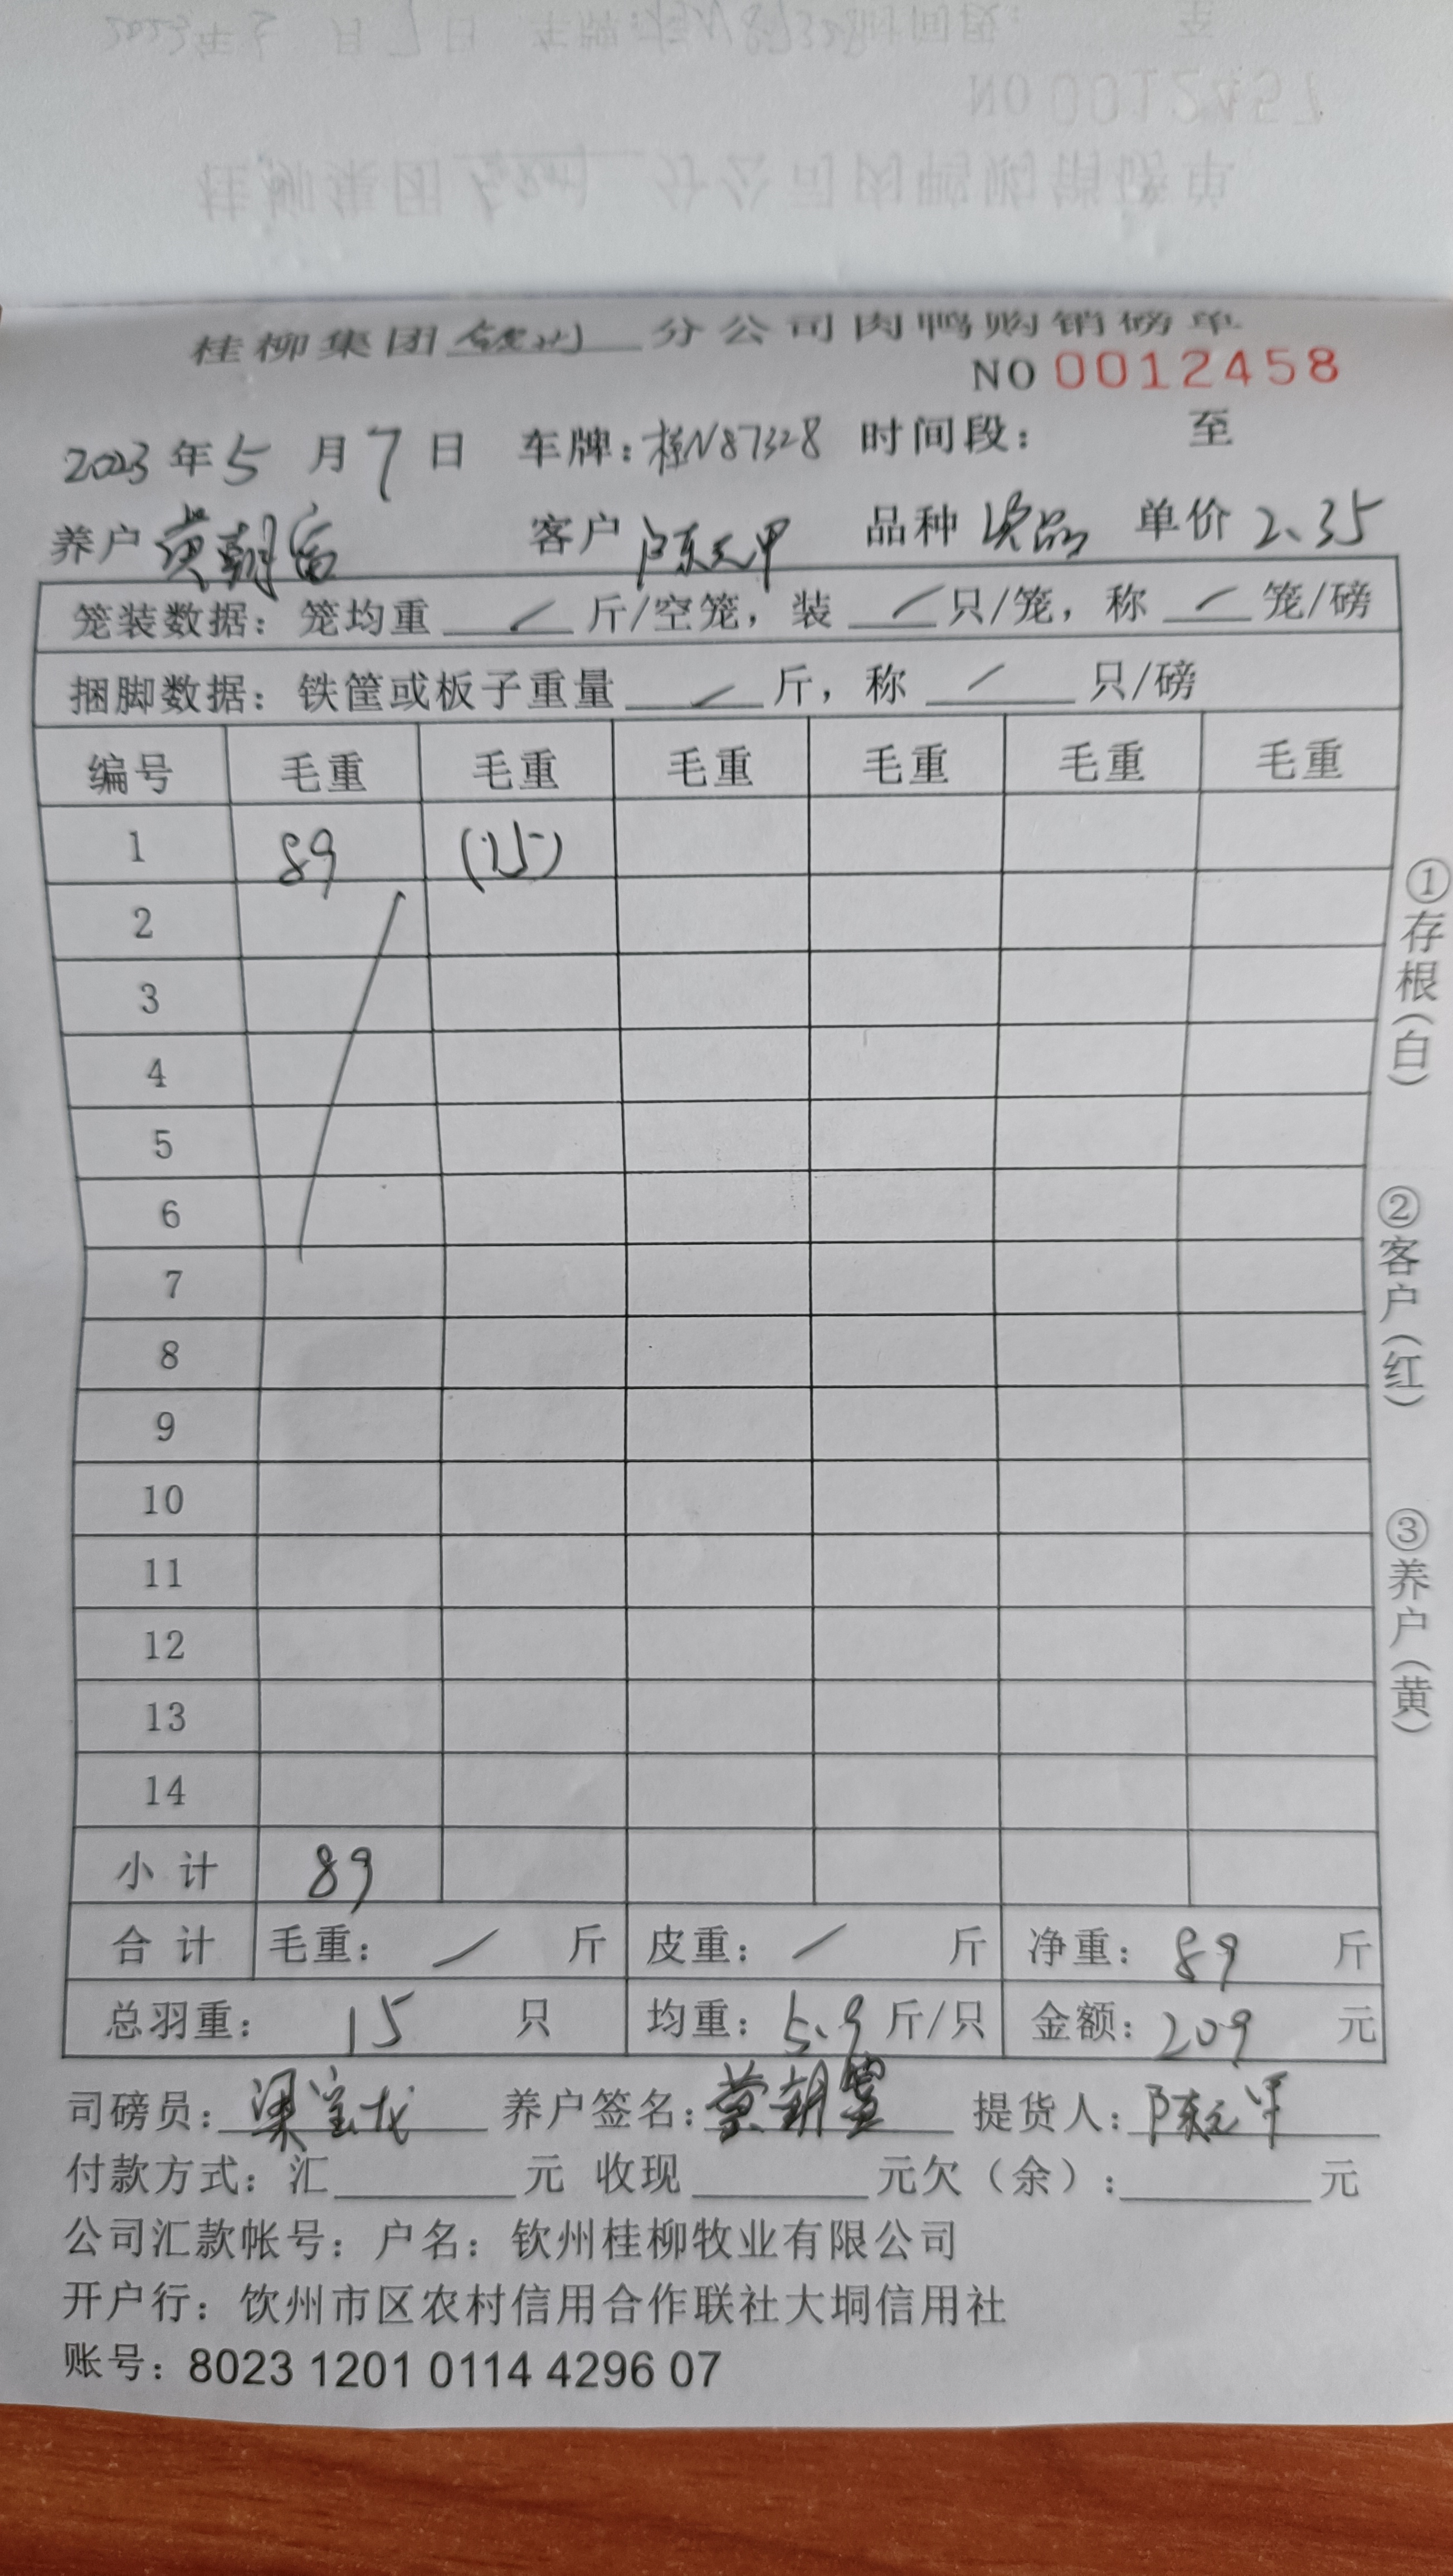 桂柳集团 分公司肉鸭购销磅单
NO 0012458
2023年5月7日 车牌:桂N87328 时间段: 至
养户 黄朝富 客户 陈元甲 品种 次品 单价 2.35
笼装数据: 笼均重 / 斤/空笼, 装 / 只/笼, 称 / 笼/磅
捆脚数据: 铁筐或板子重量 / 斤, 称 / 只/磅
编号 毛重 毛重 毛重 毛重 毛重 毛重
1 89 (15)
2
3
4
5
6
7
8
9
10
11
12
13
14
小计 89
合计 毛重: / 斤 皮重: / 斤 净重: 89 斤
总羽重: 15 只 均重: 5.9 斤/只 金额: 209 元
司磅员: 梁宝龙 养户签名: 提货人: 陈元甲
付款方式: 汇 元 收现 元欠(余): 元
公司汇款帐号: 户名: 钦州桂柳牧业有限公司
开户行: 饮州市区农村信用合作联社大垌信用社
账号: 8023 1201 0114 4296 07
①存根(白)
②客户(红)
③养户(黄)